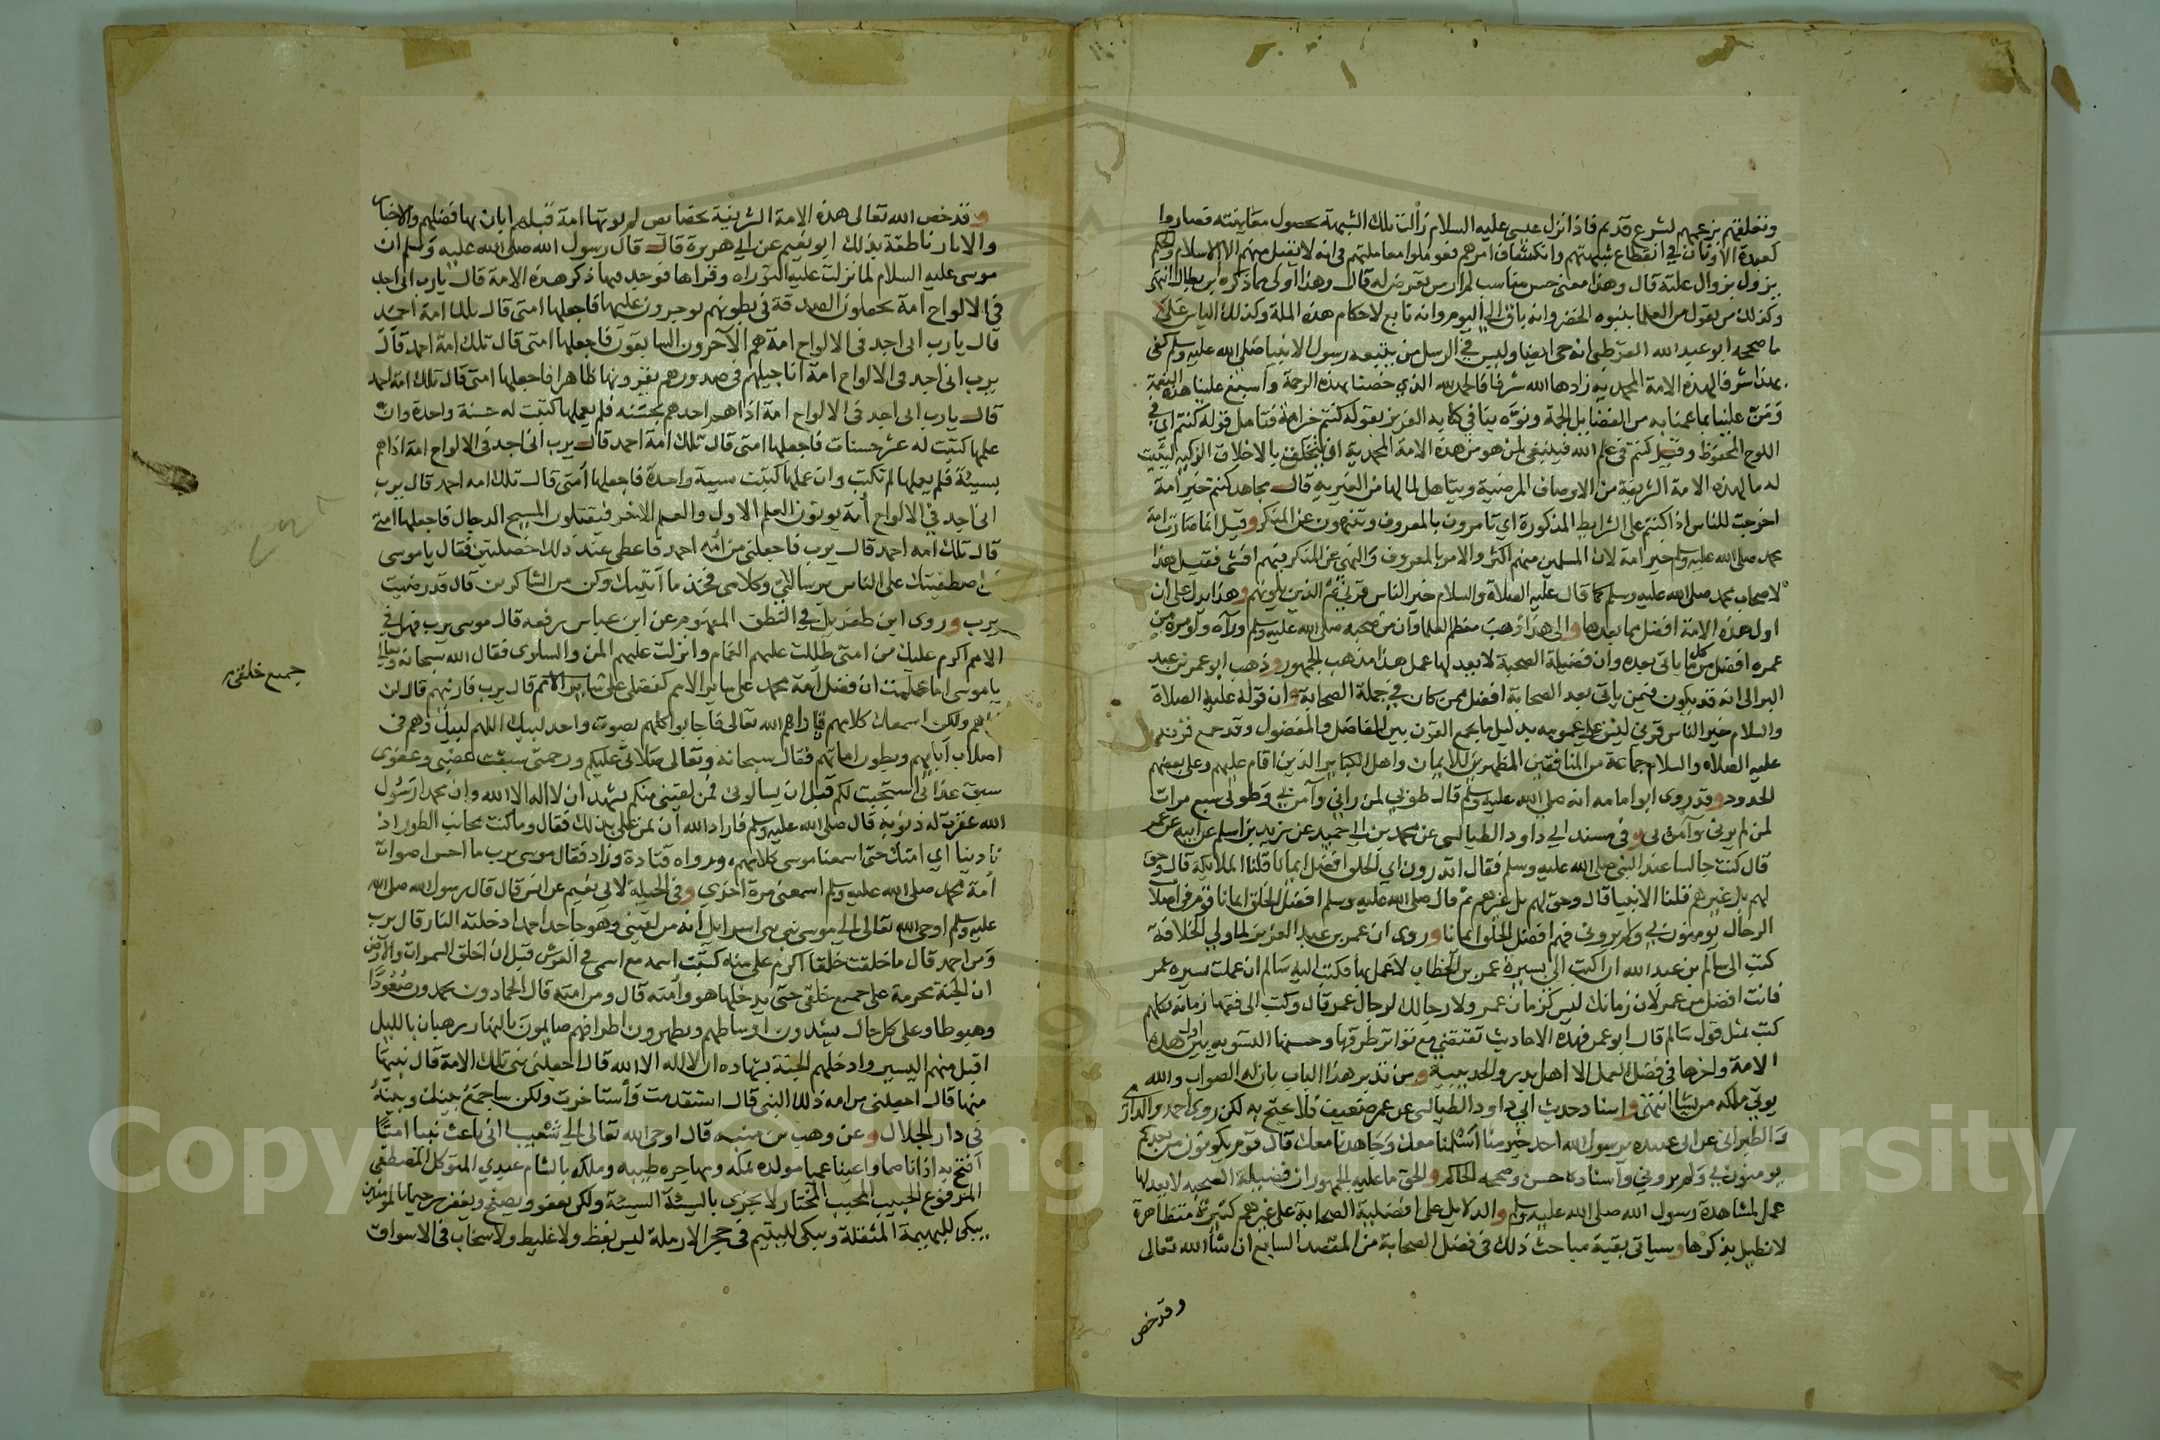 وتعلقهم بزعمهم لشرع قديم فاذا نزل عيسى عليه السلام زالت تلك الشبهة بحصول معاينته فصاروا
كعبدة الاوثان في انقطاع شبهتهم وانكشاف امرهم فعوملوا معاملتهم في انه لا يقبل منهم الا الاسلام والحكم
يزول بزوال علته قال وهذا معنى حسن مناسب لم ار من تعرض له قال وهذا اولى مما ذكره ابن بطال انتهى
وكذلك من يقول من العلما بنبوه الخضر وانه باق الى اليوم وانه تابع لاحكام هذه الملة وكذلك الياس على
ما صححه ابو عبد الله القرطبي انه حي ايضا وليس في الرسل من يتبعه رسول الا نبينا صلى الله عليه وسلم كفى
بهذا شرفا لهذه الامة المحمديه زادها الله شرفا فالحمد لله الذي خصنا بهذه الرحمة واسبغ علينا هذه النعمة
ومن علينا بما عمنا به من الفضايل الجمة ونوه بنا في كتابه العزيز بقوله كنتم خير امة فتامل قوله كنتم اي في
اللوح المحفوظ وقيل كنتم في علم الله فينبغي لمن هو من هذه الامة المحمدية ان يتخلق بالاخلاق الزكيه ليثبت
له ما لهذه الامة الشريفة من الاوصاف المرضية ويتاهل لما لها من الخيريه قال مجاهد كنتم خير امة
اخرجت للناس اذا كنتم على الشرايط المذكورة اي تامرون بالمعروف وتنهون عن المنكر وقيل انما صارت امة
محمد صلى الله عليه وسلم خير امة لان المسلمين منهم اكثر والامر بالمعروف والنهي عن المنكر فيهم افشى فقيل هذا
لاصحاب محمد صلى الله عليه وسلم كما قال عليه الصلاة والسلام خير الناس قرني ثم الذين يلونهم وهذا يدل على ان
اول هذه الامة افضل مما بعدها والى هذا ذهب معظم العلما وان من صحبه صلى الله عليه وسلم ورآه ولو مرة من
عمره افضل من كل ما ياتي بعده وان فضيلة الصحبة لا يعد لها عمل هذا مذهب الجمهور وذهب ابو عمر بن عبد
البر الى انه قد يكون فيمن ياتي بعد الصحابة افضل ممن كان في جملة الصحابة وان قوله عليه الصلاة
والسلام خير الناس قرني ليس على عمومه بدليل ما يجمع القرن بين الفاضل والمفضول وقد جمع قرنه
عليه الصلاه والسلام جماعة من المنافقين المظهرين للايمان واهل الكباير الذين اقام عليهم وعلى بعضهم
الحدود وقد روى ابو امامه انه صلى الله عليه وسلم قال طوبى لمن راني وآمن بي وطوبى سبع مرات
لمن لم يرني وآمن بي وفي مسند ابي داود الطيالسي عن محمد بن ابي حميد عن زيد بن اسلم عن ابيه عن عمر
قال كنت جالسا عند النبي صلى الله عليه وسلم فقال اتدرون اي الخلق افضل ايمانا قلنا الملائكة قال وحق
لهم بل غيرهم قلنا الانبيا قال وحق لهم بل غيرهم ثم قال صلى الله عليه وسلم افضل الخلق ايمانا قوم في اصلاب
الرجال يومنون بي ولم يروني فهم افضل الخلق ايمانا وروى ان عمر بن عبد العزيز لما ولي الخلافة
كتب الى سالم بن عبد الله ان اكتب الي بسيرة عمر بن الخطاب لاعمل بها فكتب اليه سالم ان عملت بسيره عمر
فانت افضل من عمر لان زمانك ليس كزمان عمر ولا رجالك كرجال عمر قال وكتب الى فقها زمانه فكلهم
كتب بمثل قول سالم قال ابو عمر فهذه الاحاديث تقتضي مع تواتر طرقها وحسنها التسويه بين اول هذه
الامة واخرها في فضل العمل الا اهل بدر والحديبية ومن تدبر هذا الباب بان له الصواب والله
يوتي ملكه من يشا انتهى واسناد حديث ابي داود الطيالسي عن عمر ضعيف فلا يحتج به لكن روى احمد والدارمي
والطبراني عن ابي عبيده يرسول الله احد خير منا اسلمنا معك وجاهدنا معك قال قوم يكونون من بعدكم
يومنون بي ولم يروني واسناده حسن وصححه الحاكم والحق ما عليه الجمهور ان فضيلة الصحبه لا يعدلها
عمل لمشاهدة رسول الله صلى الله عليه وسلم والدلايل على افضلية الصحابة على غيرهم كثيرة متظاهرة
لا نطيل بذكرها وسياتي بقية مباحث ذلك في فضل الصحابة من المقصد السابع ان شا الله تعالى
وقد خص
وقد خص الله تعالى هذه الامة الشريفة بخصايص لم يوتها امة قبلهم ابان بها فضلهم والاخبار
والاثار ناطقة بذلك ابو نعيم عن ابي هريرة قال قال رسول الله صلى الله عليه وسلم ان
موسى عليه السلام لما نزلت عليه التوراه وقراها فوجد فيها ذكر هذه الامة قال يارب اني اجد
في الالواح امة يجعلون الصدقة في بطونهم يوجرون عليها فاجعلها امتي قال تلك امة احمد
قال يارب اني اجد في الالواح امة هم الآخرون السابقون فاجعلها امتي قال تلك امة احمد قال
يرب اني اجد في الالواح امة اناجيلهم في صدورهم يقرونها ظاهرا فاجعلها امتي قال تلك امة احمد
قال يارب اني اجد في الالواح امة اذا هم احدهم بحسنه فلم يعملها كتبت له حسنة واحدة وان
عملها كتبت له عشر حسنات فاجعلها امتي قال تلك امة احمد قال يرب اني اجد في الالواح امة اذا هم
بسيئة فلم يعملها لم تكتب وان عملها كتبت سيية واحدة فاجعلها امتي قال تلك امه احمد قال يرب
اني اجد في الالواح امة يوتون العلم الاول والعلم الاخر فيقتلون المسيح الدجال فاجعلها امتي
قال تلك امه احمد قال يرب فاجعلني من امة احمد فاعطي عند ذلك خصلتين فقال يا موسى
اني اصطفيتك على الناس برسالاتي وكلامي فخذ ما آتيتك وكن من الشاكرين قال قد رضيت
يرب وروى ابن طغربك في النطق المفهوم عن ابن عباس رفعه قال موسى يرب فهل في
الامم اكرم عليك من امتي ظللت عليهم الغمام وانزلت عليهم المن والسلوى فقال الله سبحانه وتعالى
ياموسى اما علمت ان فضل امة محمد على ساير الامم كفضلي على جميع خلقي قال يرب فارنيهم قال لن
تراهم ولكن اسمعك كلامهم فناداهم الله تعالى فاجابوا كلهم بصوت واحد لبيك اللهم لبيك وهم في
اصلاب آبايهم وبطون امهاتهم فقال سبحانه وتعالى صلاتي عليكم ورحمتي سبقت غضبي وعفوي
سبق عذابي استجبت لكم قبل ان يسالوني فمن لقيني منكم يشهد ان لا اله الا الله وان محمدا رسول
الله غفرت له ذنوبه قال صلى الله عليه وسلم فاراد الله ان يمن علي بذلك فقال وما كنت بجانب الطور اذ
نادينا اي امتك حتى اسمعنا موسى كلامهم ورواه قتادة وزاد فقال موسى يرب ما احسن اصوات
امة محمد صلى الله عليه وسلم اسمعني مرة اخرى وفي الحلية لابي نعيم عن انس قال قال رسول الله صلى الله
عليه وسلم اوحى الله تعالى الى موسى نبي بني اسرايل انه من لقيني وهو جاحد احمد ادخلته النار قال يرب
ومن احمد قال ما خلقت خلقا اكرم علي منه كتبت اسمه مع اسمي في العرش قبل ان اخلق السموات والارض
ان الجنة محرمة على جميع خلقي حتى يدخلها هو وامته قال ومن امته قال الحمادون يحمدون صعودا
وهبوطا وعلى كل حال يشدون اوساطهم ويطهرون اطرافهم صايمون بالنهار رهبان بالليل
اقبل منهم اليسير وادخلهم الجنة بشهاده ان لا اله الا الله قال اجعلني نبي تلك الامة قال نبيها
منها قال اجعلني من امه ذلك النبي قال استقدمت واستاخرت ولكن ساجمع بينك وبينه
في دار الجلال وعن وهب بن منبه قال اوحى الله تعالى الى شعيب اني باعث نبيا اميا
افتح به اذانا صما واعينا عميا مولده بمكه ومهاجره طيبه وملكه بالشام عبدي المتوكل المصطفى
المرفوع الحبيب المحبب المختار لا يجزي بالسيئة السيئة ولكن يعفو ويصفح ويغفر رحيما بالمومنين
يبكي للبهيمة المثقلة ويبكي لليتيم في حجر الارملة ليس بفظ ولا غليظ ولا سخاب في الاسواق
جميع خلقي
Copyright © King Saud University